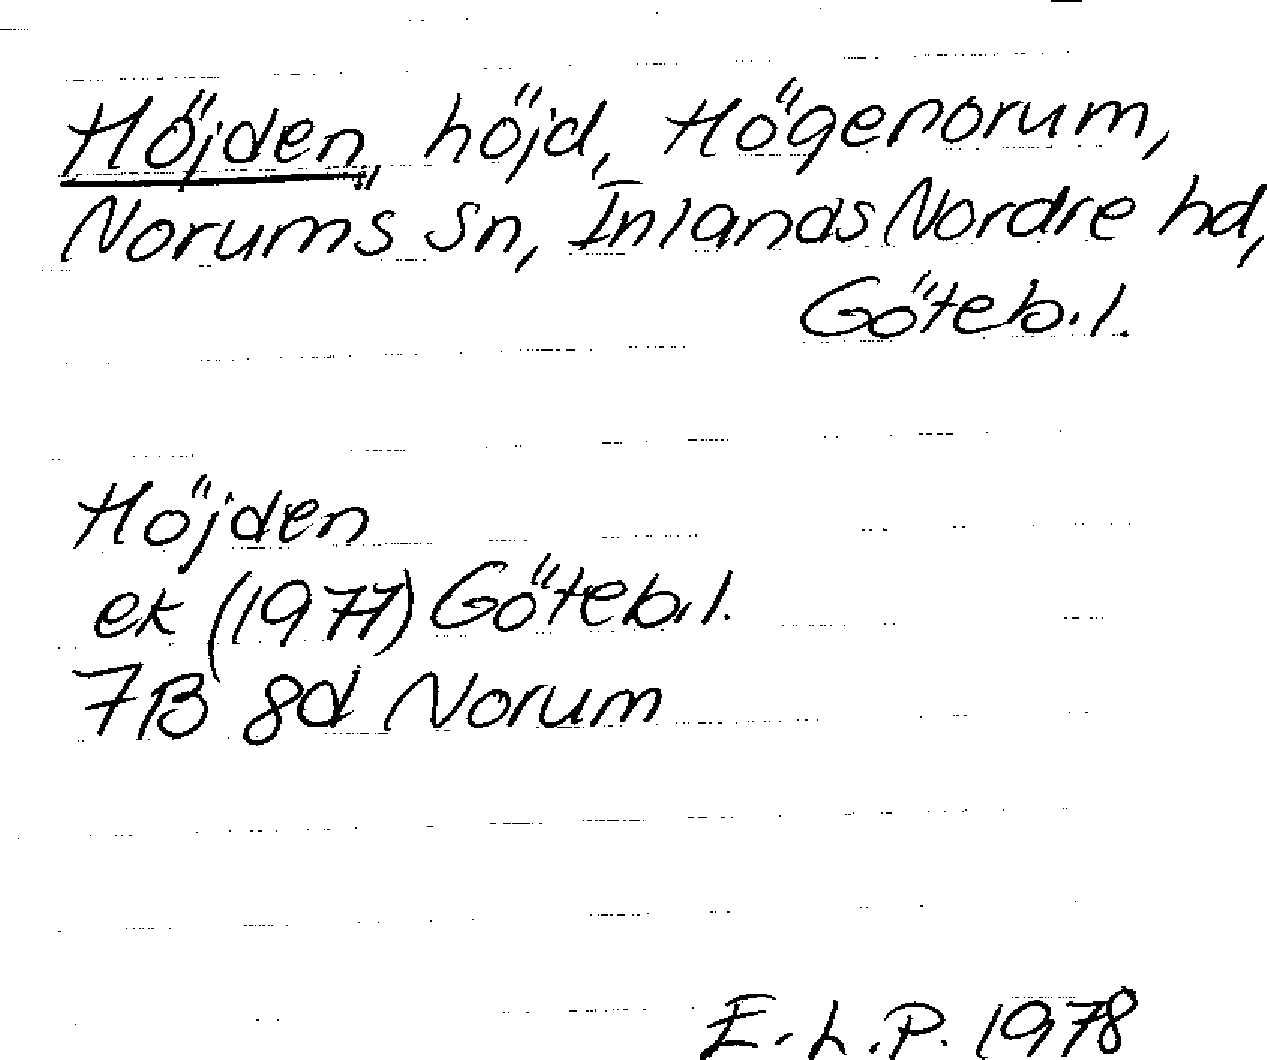 Höjden, höjd, Högenorum,
Norums sn, Inlands Nordre hd,
Göteb.l.
Höjden
ek (1977) Göteb.l.
7B 8d Norum
E.L.P. 1978